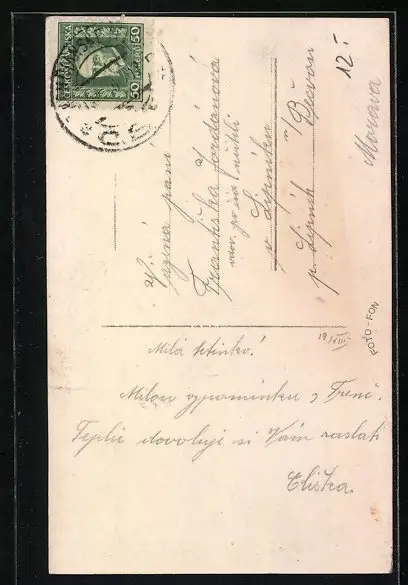 ČESKOSLOVENSKÁ
50 50
12.-
Vážená paní
Františka Jordánová
vdov. po
v Lipníku
p. Lipník n/Bečvou
Morava
FOTO-FON
19/VIII
Milá tetinko!
Milou vzpomínku z Trenč.
Teplic dovoluji si Vám zaslati
Eliška.